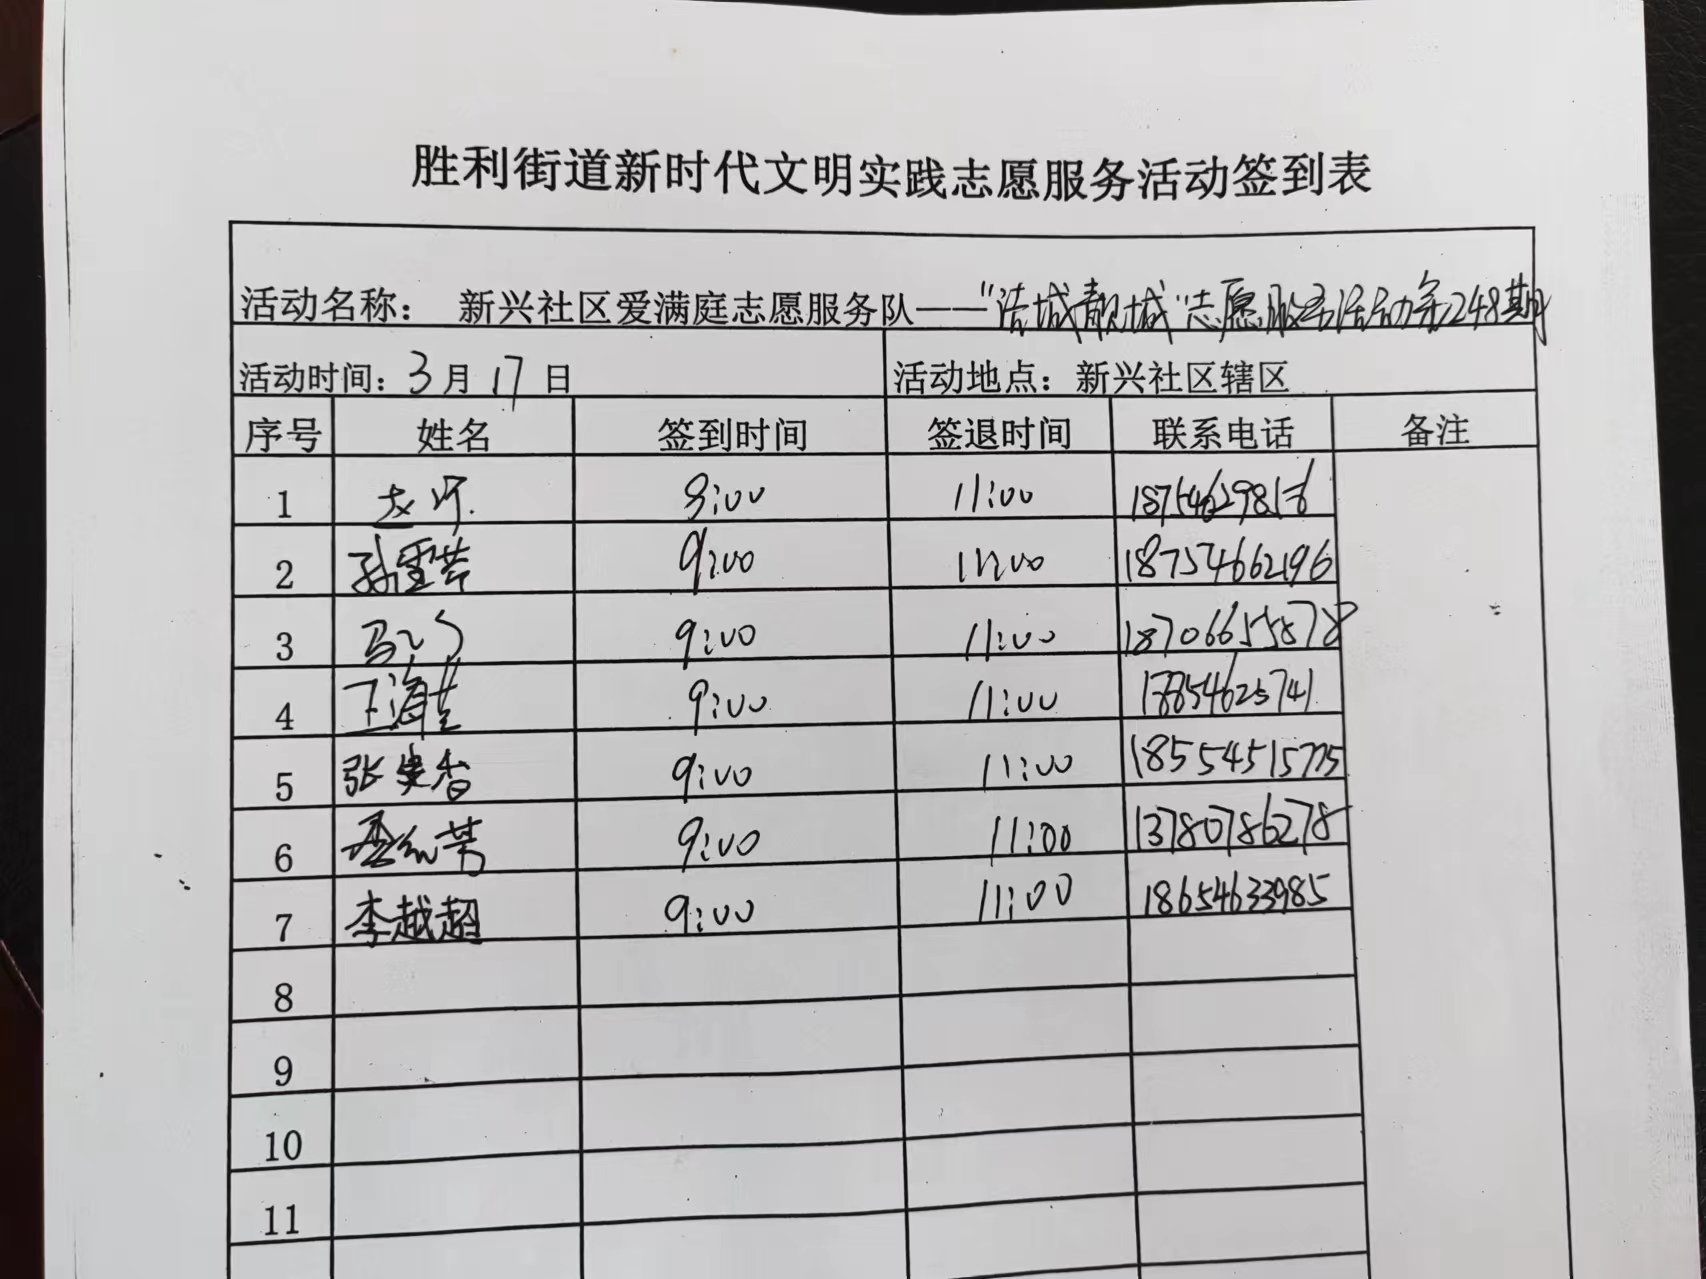 胜利街道新时代文明实践志愿服务活动签到表
活动名称： 新兴社区爱满庭志愿服务队——“洁城靓城”志愿服务活动第248期
活动时间：3月17日 活动地点：新兴社区辖区
序号 姓名 签到时间 签退时间 联系电话 备注
1 9:00 11:00
2 孙雪芹 9:00 11:00 18754662196
3 9:00 11:00 18706655878
4 9:00 11:00 18854625741
5 张建香 9:00 11:00 18554515775
6 9:00 11:00 13780786278
7 李越超 9:00 11:00 18654633985
8
9
10
11